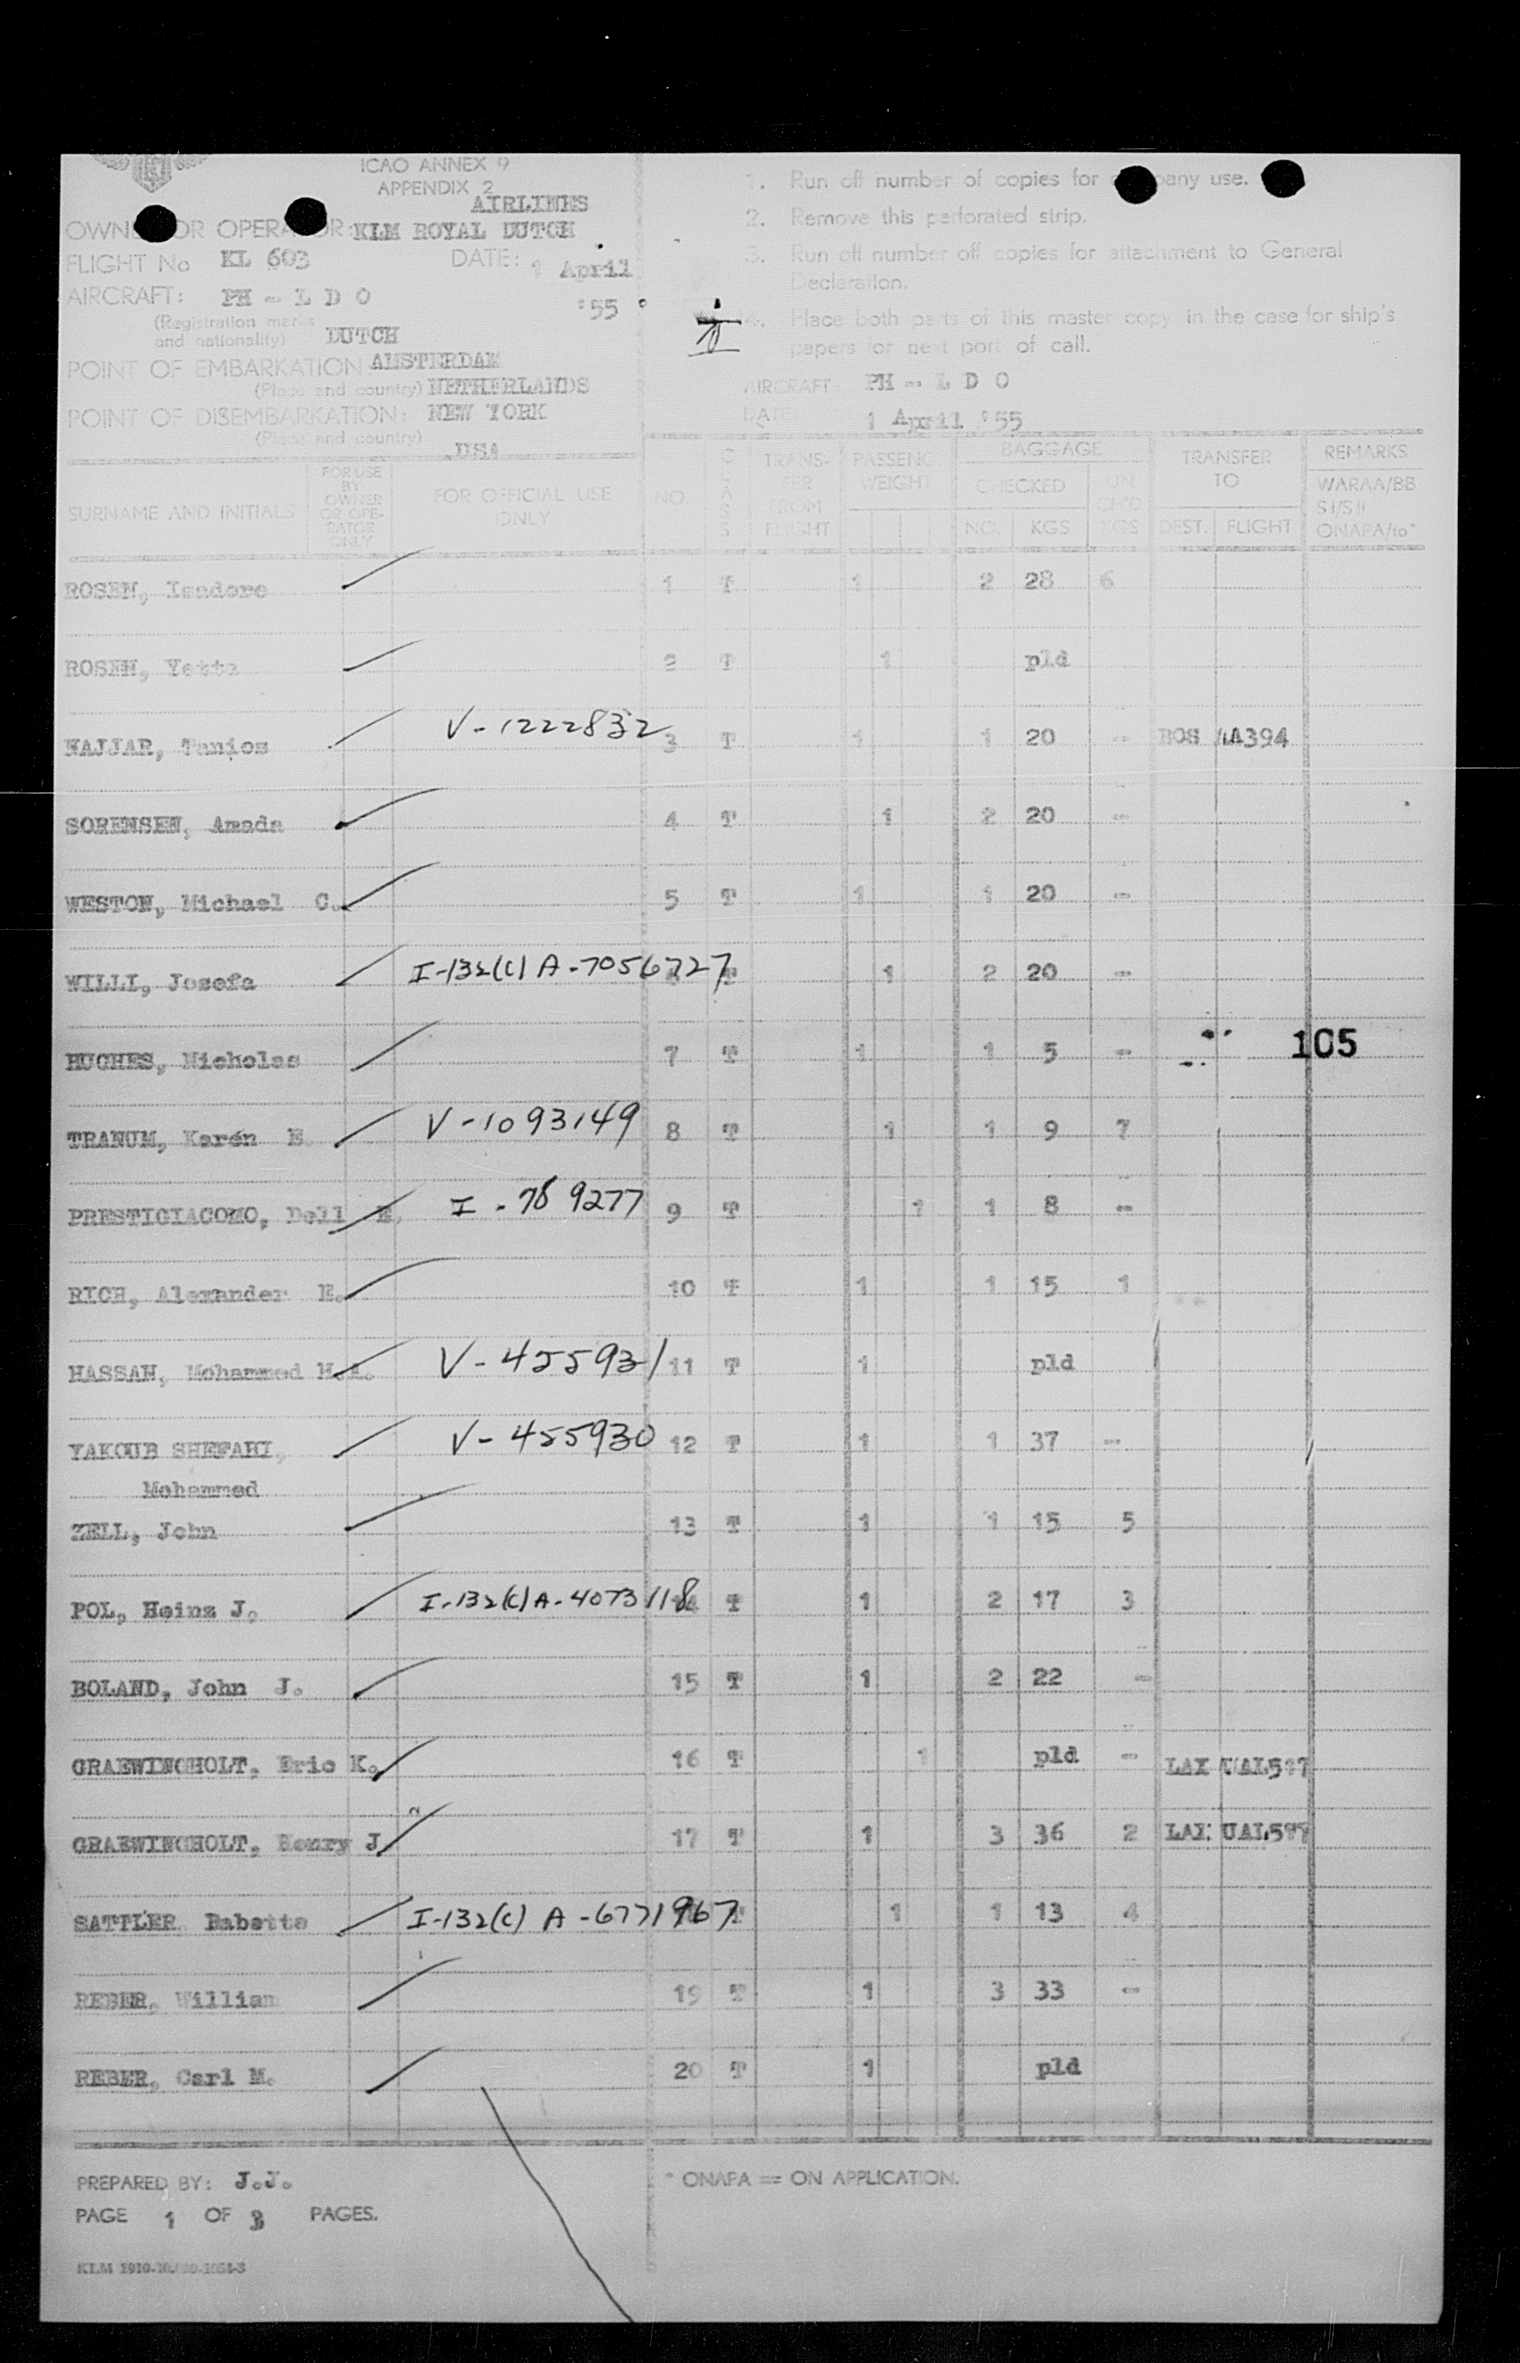 ICAO ANNEX 9
APPENDIX 2
AIRLINES
OWNER OR OPERATOR: KLM ROYAL DUTCH
FLIGHT No KL 603 DATE: 1 April '55
AIRCRAFT: PH - L D O
(Registration marks and nationality) DUTCH
POINT OF EMBARKATION AMSTERDAM
(Place and country) NETHERLANDS
POINT OF DISEMBARKATION: NEW YORK
(Place and country) USA
1. Run off number of copies for company use.
2. Remove this perforated strip.
3. Run off number off copies for attachment to General
Declaration.
4. Place both parts of this master copy in the case for ship's
papers for next port of call.
AIRCRAFT: PH - L D O
DATE 1 April '55
SURNAME AND INITIALS
FOR USE BY OWNER OR OPERATOR ONLY
FOR OFFICIAL USE ONLY
NO.
CLASS
TRANSFER FROM FLIGHT
PASSENG. WEIGHT
BAGGAGE
CHECKED
NO. KGS
UN CH'D KGS
TRANSFER TO
DEST. FLIGHT
REMARKS
WARAA/BB
SI/SII
ONAPA/to*
ROSEN, Isadore 1 T 1 2 28 6
ROSEN, Yetta 2 T 1 pld
NAJJAR, Tanios V-1222832 3 T 1 1 20 - BOS AA394
SORENSEN, Amada 4 T 1 2 20 -
WESTON, Michael C. 5 T 1 1 20 -
WILLI, Josefa I-132(C) A-7056727 T 1 2 20 -
HUGHES, Nicholas 7 T 1 1 5 -
105
TRANUM, Karén E. V-1093149 8 T 1 1 9 7
PRESTIGIACOMO, Dell E. I-789277 9 T 1 1 8 -
RICH, Alexander H. 10 T 1 1 15 1
HASSAN, Mohammed H.A. V-455931 11 T 1 pld
YAKOUB SHEFAHI, V-455930 12 T 1 1 37 -
Mohammed
ZELL, John 13 T 1 1 15 5
POL, Heinz J. I-132(C) A-4073118 14 T 1 2 17 3
BOLAND, John J. 15 T 1 2 22 -
GRAEWINGHOLT, Eric K. 16 T 1 pld - LAX UAL597
GRAEWINGHOLT, Henry J. 17 T 1 3 36 2 LAX UAL597
SATTLER Babette I-132(C) A-6771967 T 1 1 13 4
REBER, William 19 T 1 3 33 -
REBER, Carl M. 20 T 1 pld
PREPARED BY: J.J.
* ONAPA == ON APPLICATION.
PAGE 1 OF 3 PAGES.